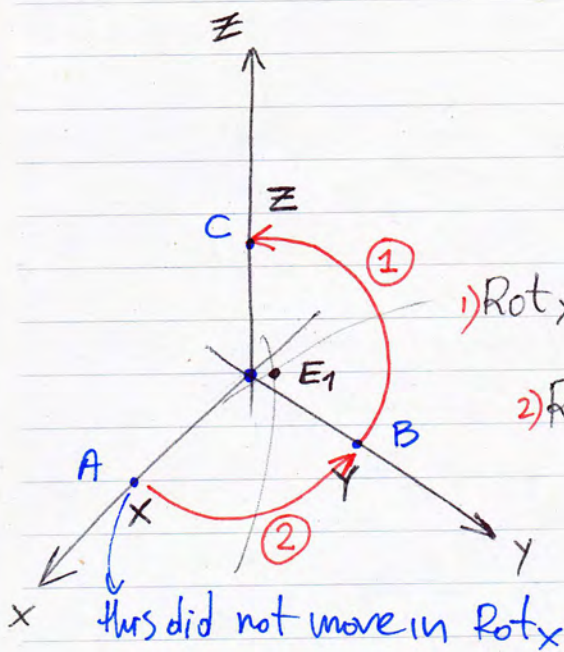 Z
Z
C
①
1) Rot x
E1
2) R
B
A
Y
X
②
Y
X
this did not move in Rot x